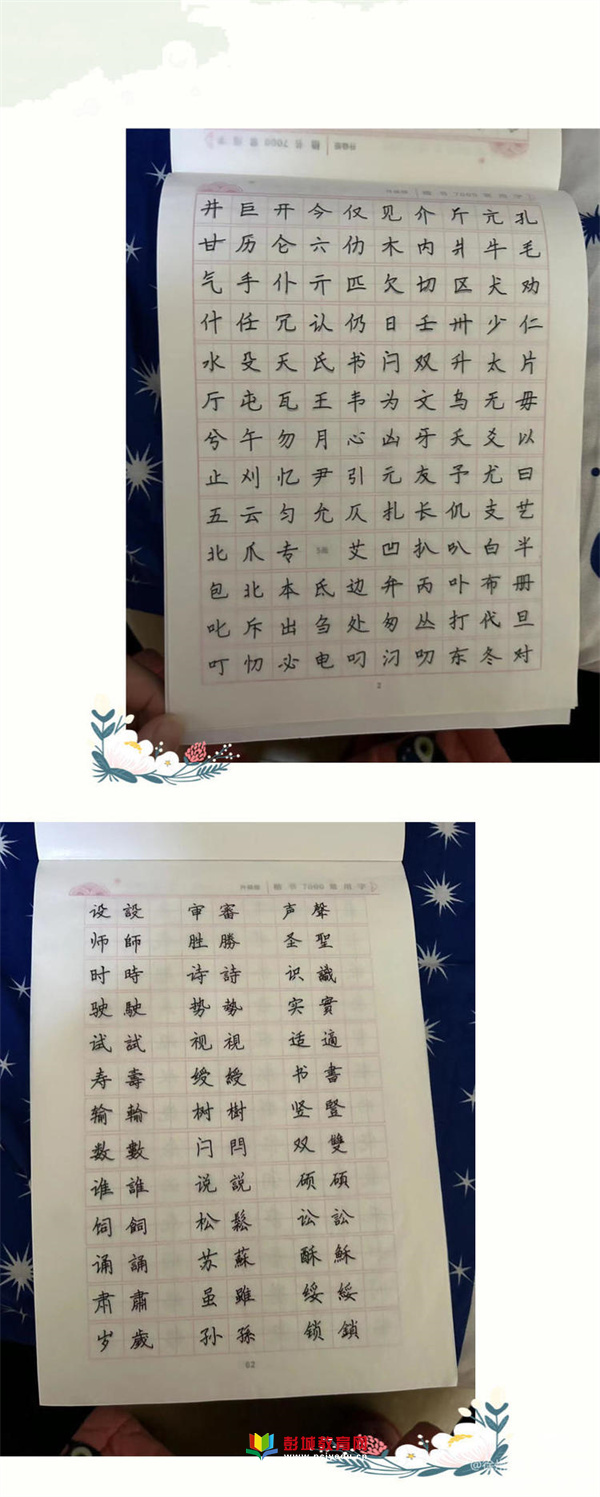 楷书7000常用字
井 巨 开 今 仅 见 介 斤 亢 孔
甘 历 仑 六 仂 木 内 爿 牛 毛
气 手 仆 亓 匹 欠 切 区 犬 劝
什 任 冗 认 仍 日 壬 卅 少 仁
水 殳 天 氏 书 闩 双 升 太 片
厅 屯 瓦 王 韦 为 文 乌 无 毋
兮 午 勿 月 心 凶 牙 夭 爻 以
止 刈 忆 尹 引 元 友 予 尤 曰
五 云 匀 允 仄 扎 长 仉 支 艺
北 爪 专 5画 艾 凹 扒 叭 白 半
包 北 本 氐 边 弁 丙 卟 布 册
叱 斥 出 刍 处 匆 丛 打 代 旦
叮 忉 必 电 叼 氻 叨 东 冬 对
2
升级版 楷书7000常用字
设 設 审 審 声 聲
师 師 胜 勝 圣 聖
时 時 诗 詩 识 識
驶 駛 势 勢 实 實
试 試 视 視 适 適
寿 壽 绶 綬 书 書
输 輸 树 樹 竖 豎
数 數 闩 閂 双 雙
谁 誰 说 説 硕 碩
饲 飼 松 鬆 讼 訟
诵 誦 苏 蘇 酥 穌
肃 肅 虽 雖 绥 綏
岁 歲 孙 孫 锁 鎖
62
彭城教育网
www.pcjyedu.cn